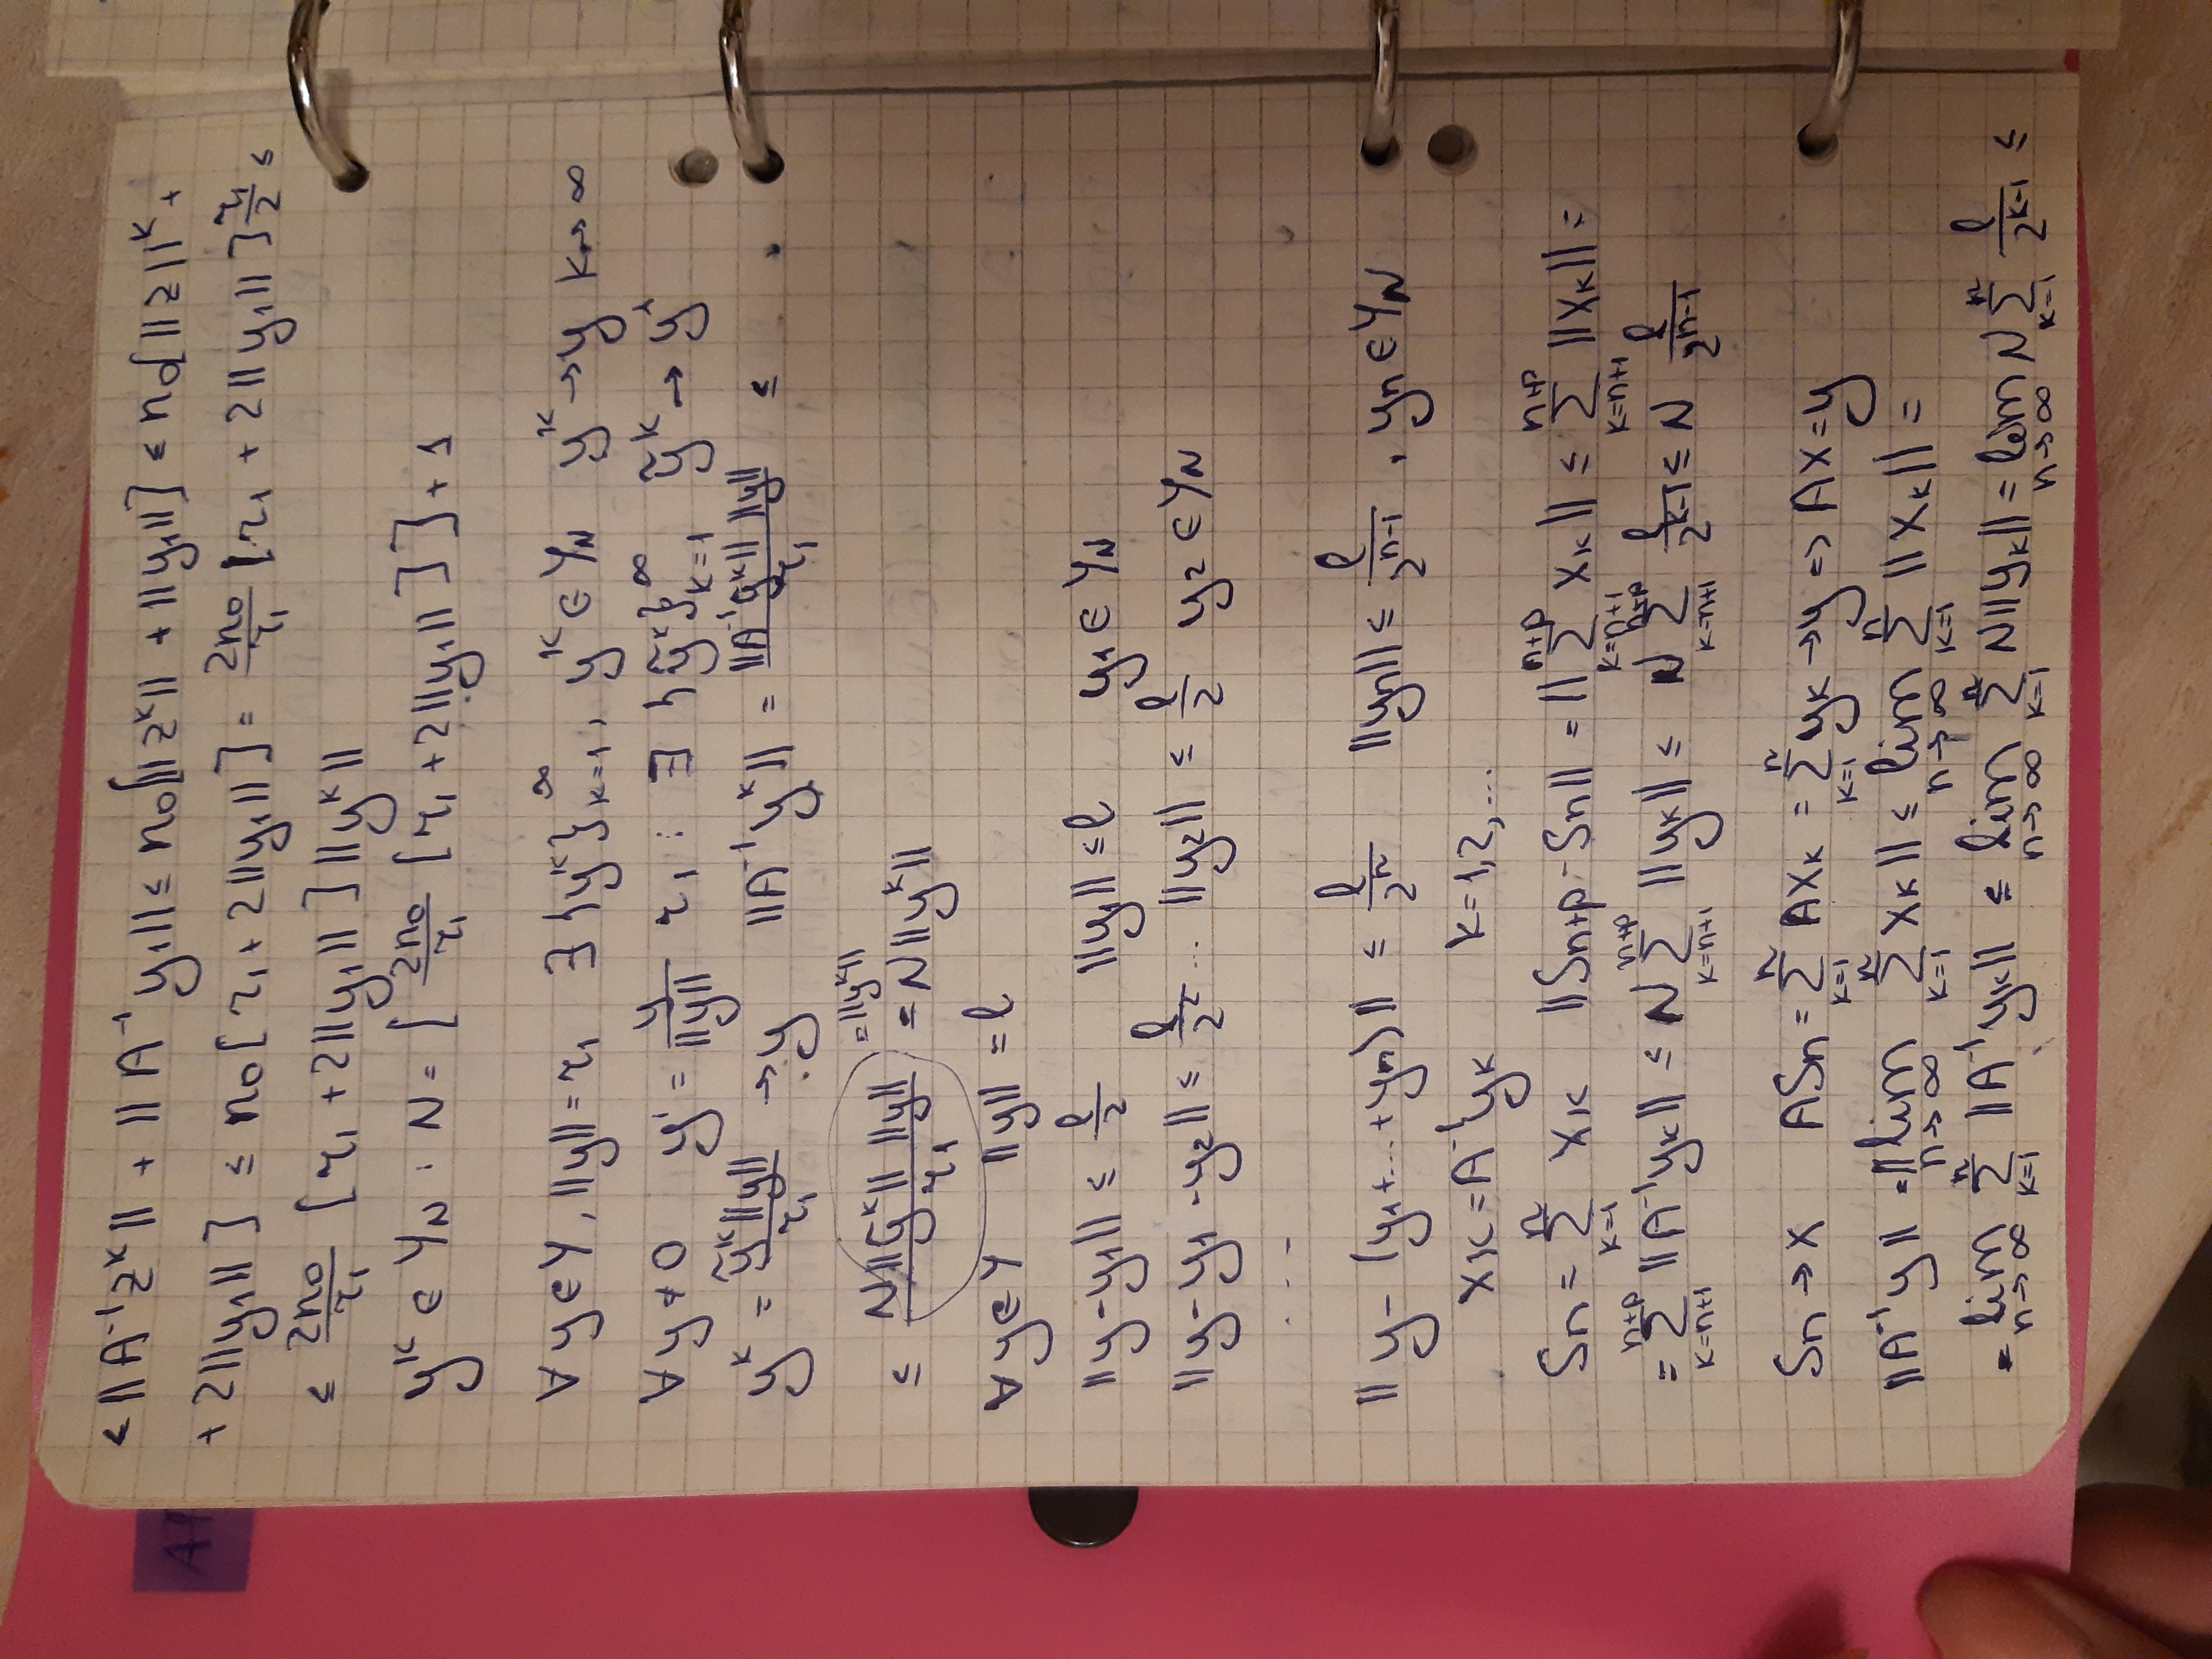 ≤ ||A⁻¹zᵏ|| + ||A⁻¹y₁|| ≤ n₀[||zᵏ|| + ||y₁||] ≤ n₀[||z||ᵏ +
+ 2||y₁||] ≤ n₀[r₁ + 2||y₁||] = 2n₀/r₁ [r₁ + 2||y₁||] r₁/2 ≤
≤ 2n₀/r₁ [r₁ + 2||y₁||] ||yᵏ||
yᵏ ∈ Y_N : N = [2n₀/r₁ [r₁ + 2||y₁||]] + 1
∀ y∈Y, ||y|| = r₁ ∃ {yᵏ}∞ₖ₌₁, yᵏ ∈ Y_N yᵏ → y k→∞
∀ y ≠ 0 y' = y/||y|| r₁ : ∃ {ỹᵏ}∞ₖ₌₁ ỹᵏ → y'
yᵏ = ỹᵏ||y||/r₁ → y ||A⁻¹yᵏ|| = ||A⁻¹ỹᵏ|| ||y||/r₁ ≤
≤ N||ỹᵏ|| ||y||/r₁ =||yᵏ|| = N||yᵏ||
∀ y∈Y ||y|| = l
||y-y₁|| ≤ l/2 ||y₁|| ≤ l y₁ ∈ Y_N
||y-y₁-y₂|| ≤ l/2² ... ||y₂|| ≤ l/2 y₂ ∈ Y_N
...
||y-(y₁+...+yₙ)|| ≤ l/2ⁿ ||yₙ|| ≤ l/2ⁿ⁻¹, yₙ ∈ Y_N
xₖ = A⁻¹yₖ k=1,2,...
Sₙ = ∑ⁿₖ₌₁ xₖ ||Sₙ₊ₚ-Sₙ|| = ||∑ⁿ⁺ᵖₖ₌ₙ₊₁ xₖ|| ≤ ∑ⁿ⁺ᵖₖ₌ₙ₊₁ ||xₖ|| =
= ∑ⁿ⁺ᵖₖ₌ₙ₊₁ ||A⁻¹yₖ|| ≤ N ∑ⁿ⁺ᵖₖ₌ₙ₊₁ ||yₖ|| ≤ N ∑ⁿ⁺ᵖₖ₌ₙ₊₁ l/2ᵏ⁻¹ ≤ N l/2ⁿ⁻¹
Sₙ → x ASₙ = ∑ⁿₖ₌₁ Axₖ = ∑ⁿₖ₌₁ yₖ → y => Ax = y
||A⁻¹y|| = ||lim n→∞ ∑ⁿₖ₌₁ xₖ|| ≤ lim n→∞ ∑ⁿₖ₌₁ ||xₖ|| =
= lim n→∞ ∑ⁿₖ₌₁ ||A⁻¹yₖ|| ≤ lim n→∞ ∑ⁿₖ₌₁ N||yₖ|| = lim n→∞ N ∑ⁿₖ₌₁ l/2ᵏ⁻¹ ≤